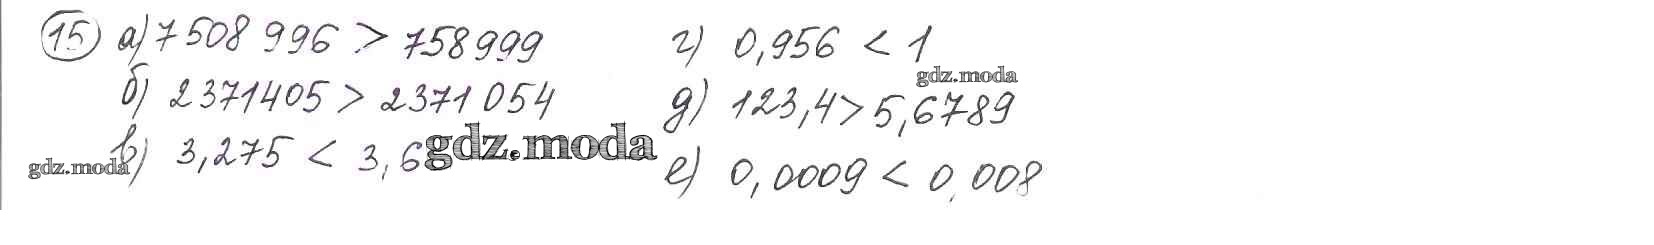 15) а) 7508 996 > 758999
б) 2371405 > 2371 054
в) 3,275 < 3,6
г) 0,956 < 1
д) 123,4 > 5,6789
е) 0,0009 < 0,008
gdz.moda
gdz.moda
gdz.moda